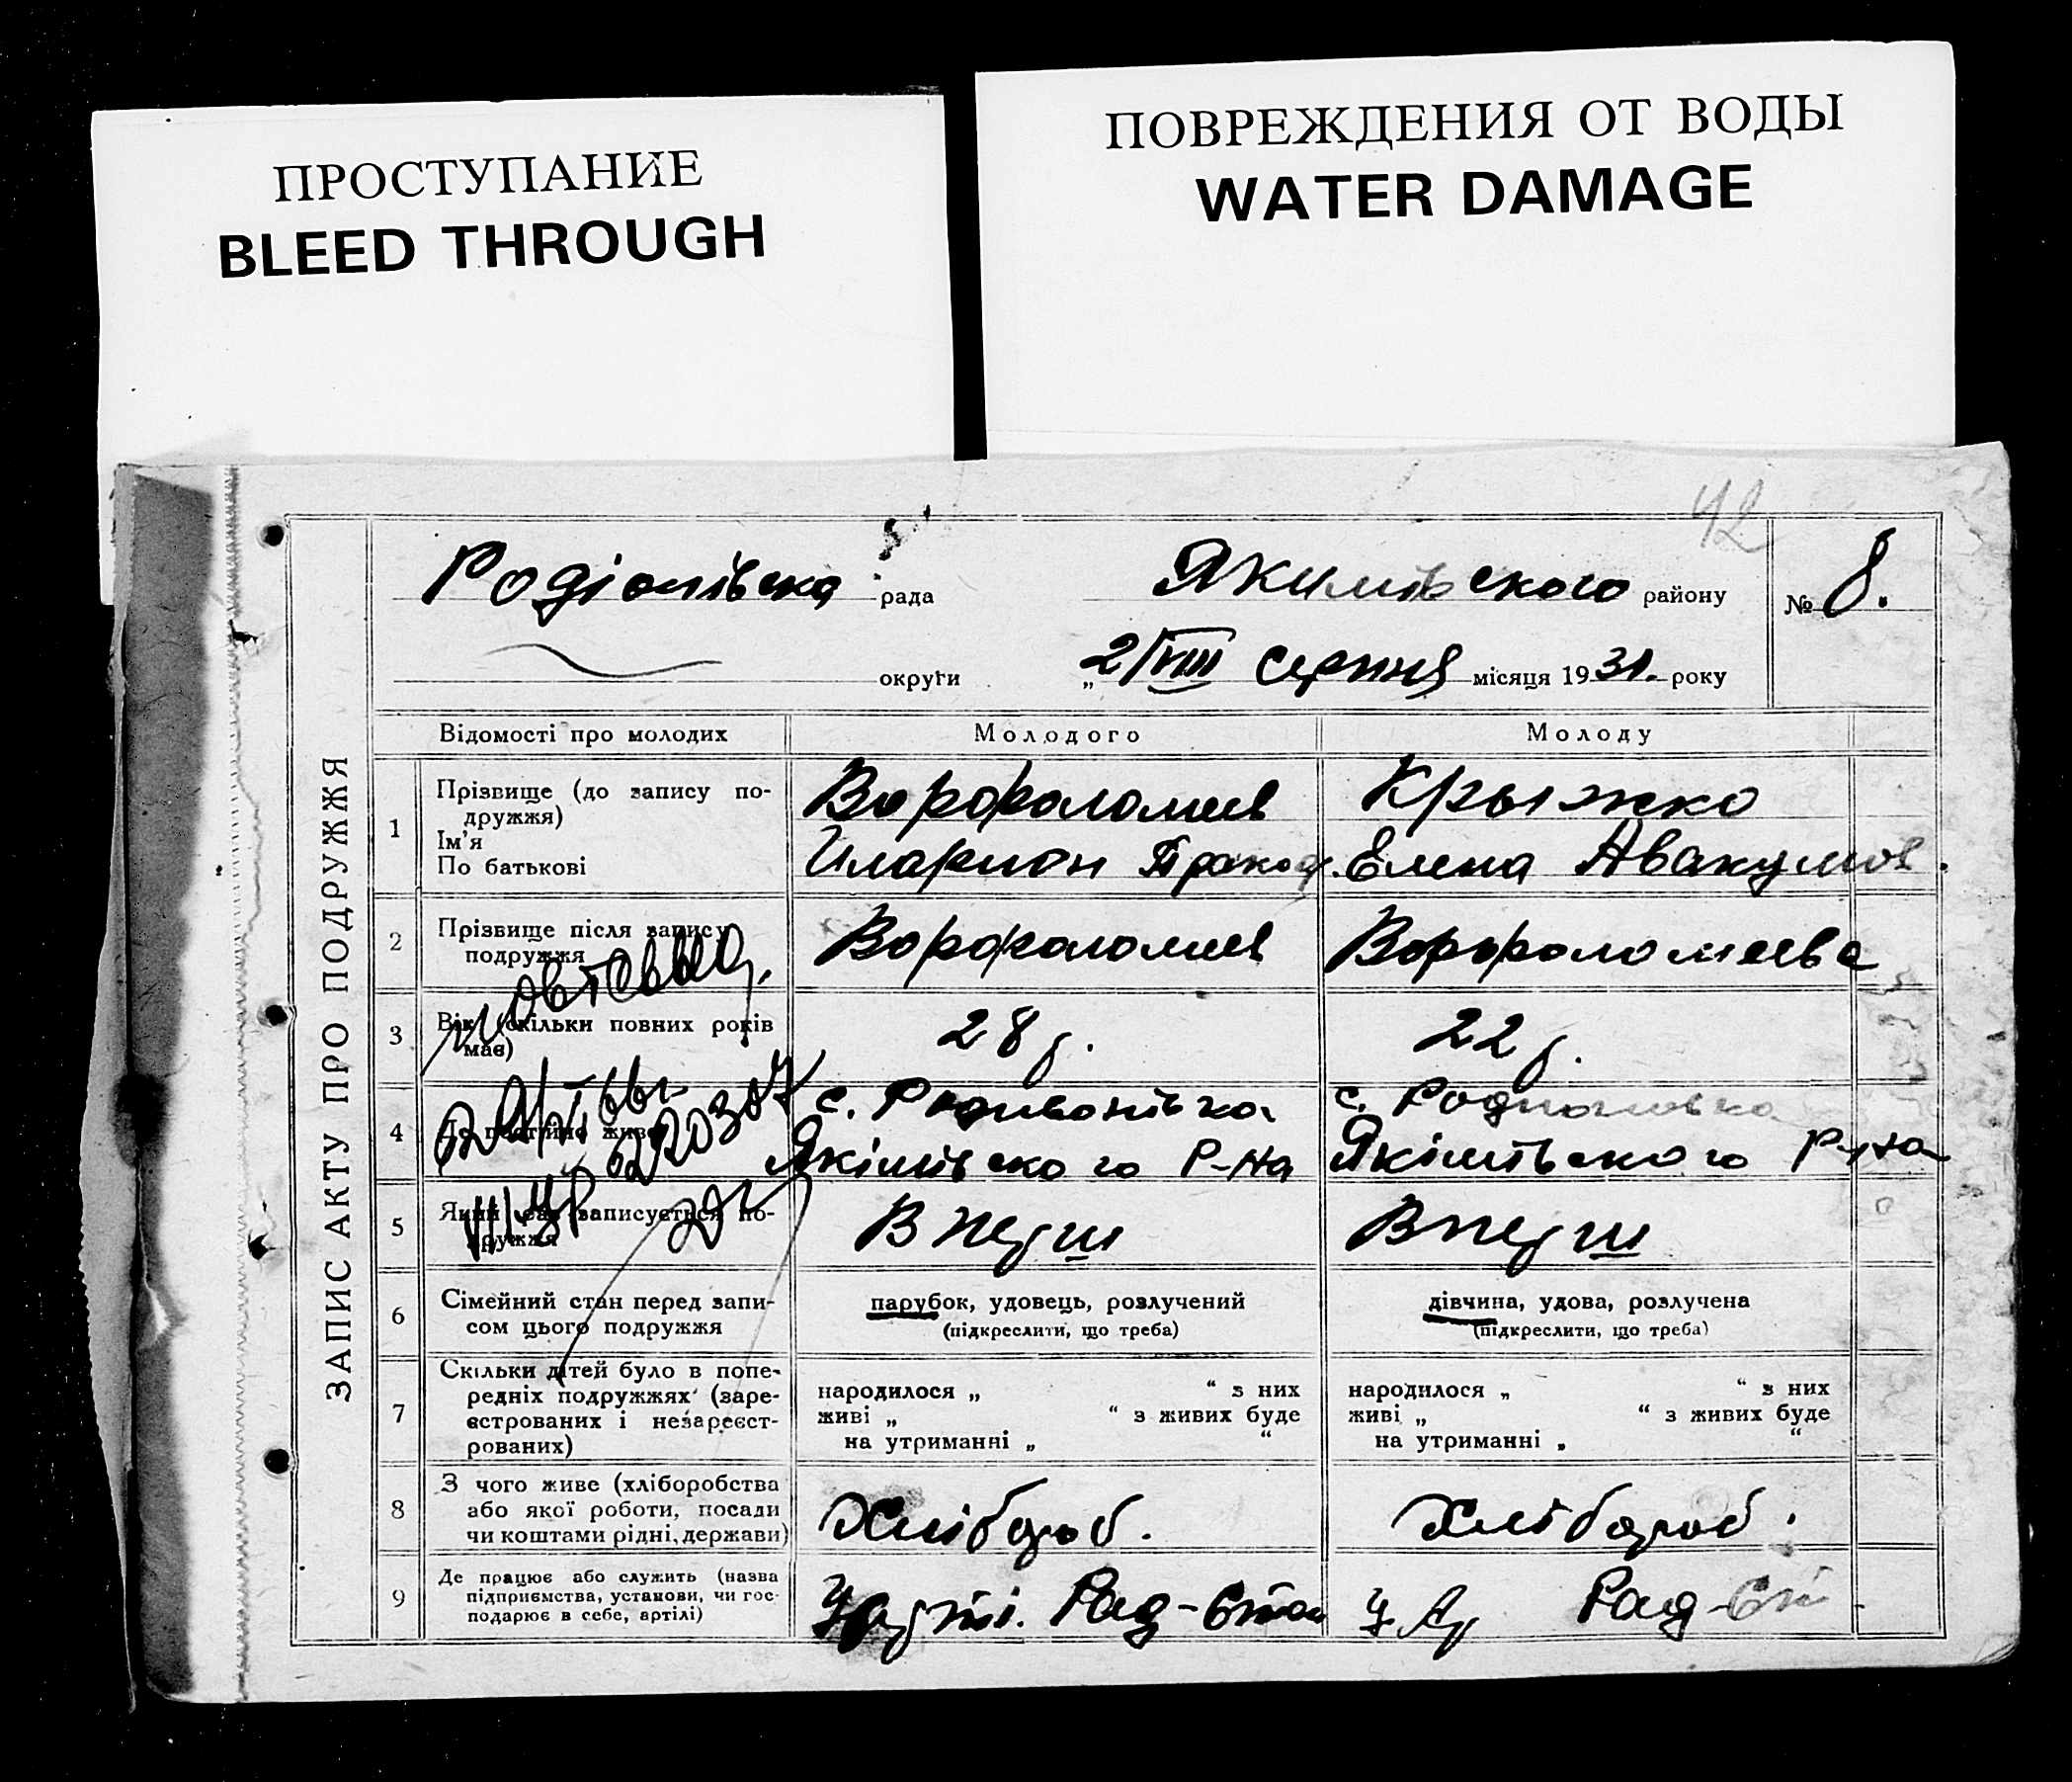 ПРОСТУПАНИЕ
BLEED THROUGH
ПОВРЕЖДЕНИЯ ОТ ВОДЫ
WATER DAMAGE
42
ЗАПИС АКТУ ПРО ПОДРУЖЖЯ
Родіонівска рада Якимівского району № 8.
округи „2/VIII Серпня місяця 1931. року
Відомості про молодих Молодого Молоду
1 Прізвище (до запису по-
дружжя)
Ім'я
По батькові
Ворфоломеев
Иларион
Крыжко
Елена Авакумов.
2 Прізвище після запису
подружжя
Ворфоломеев
Ворфоломеева
3 Вік (скільки повних років
має)
28 р.
22 р.
4 Де постійно живе
с. Родивонівка
Якімівского Р-на
с. Родионовка
Якімівского Р-на
повторно
220307
5 Який раз записується по-
дружжя
Вперш
Вперш
6 Сімейний стан перед запи-
сом цього подружжя
парубок, удовець, розлучений
(підкреслити, що треба)
дівчина, удова, розлучена
(підкреслити, що треба)
7 Скільки дітей було в попе-
редніх подружжях (заре-
єстрованих і незареєст-
рованих)
народилося „ “ з них
живі „ “ з живих буде
на утриманні „ “
народилося „ “ з них
живі „ “ з живих буде
на утриманні „ “
8 З чого живе (хліборобства
або якої роботи, посади
чи коштами рідні, держави)
Хлібороб.
Хлібороб.
9 Де працює або служить (назва
підприємства, установи, чи гос-
подарює в себе, артілі)
У арті. Рад-Степ
У Ар Рад-Ст